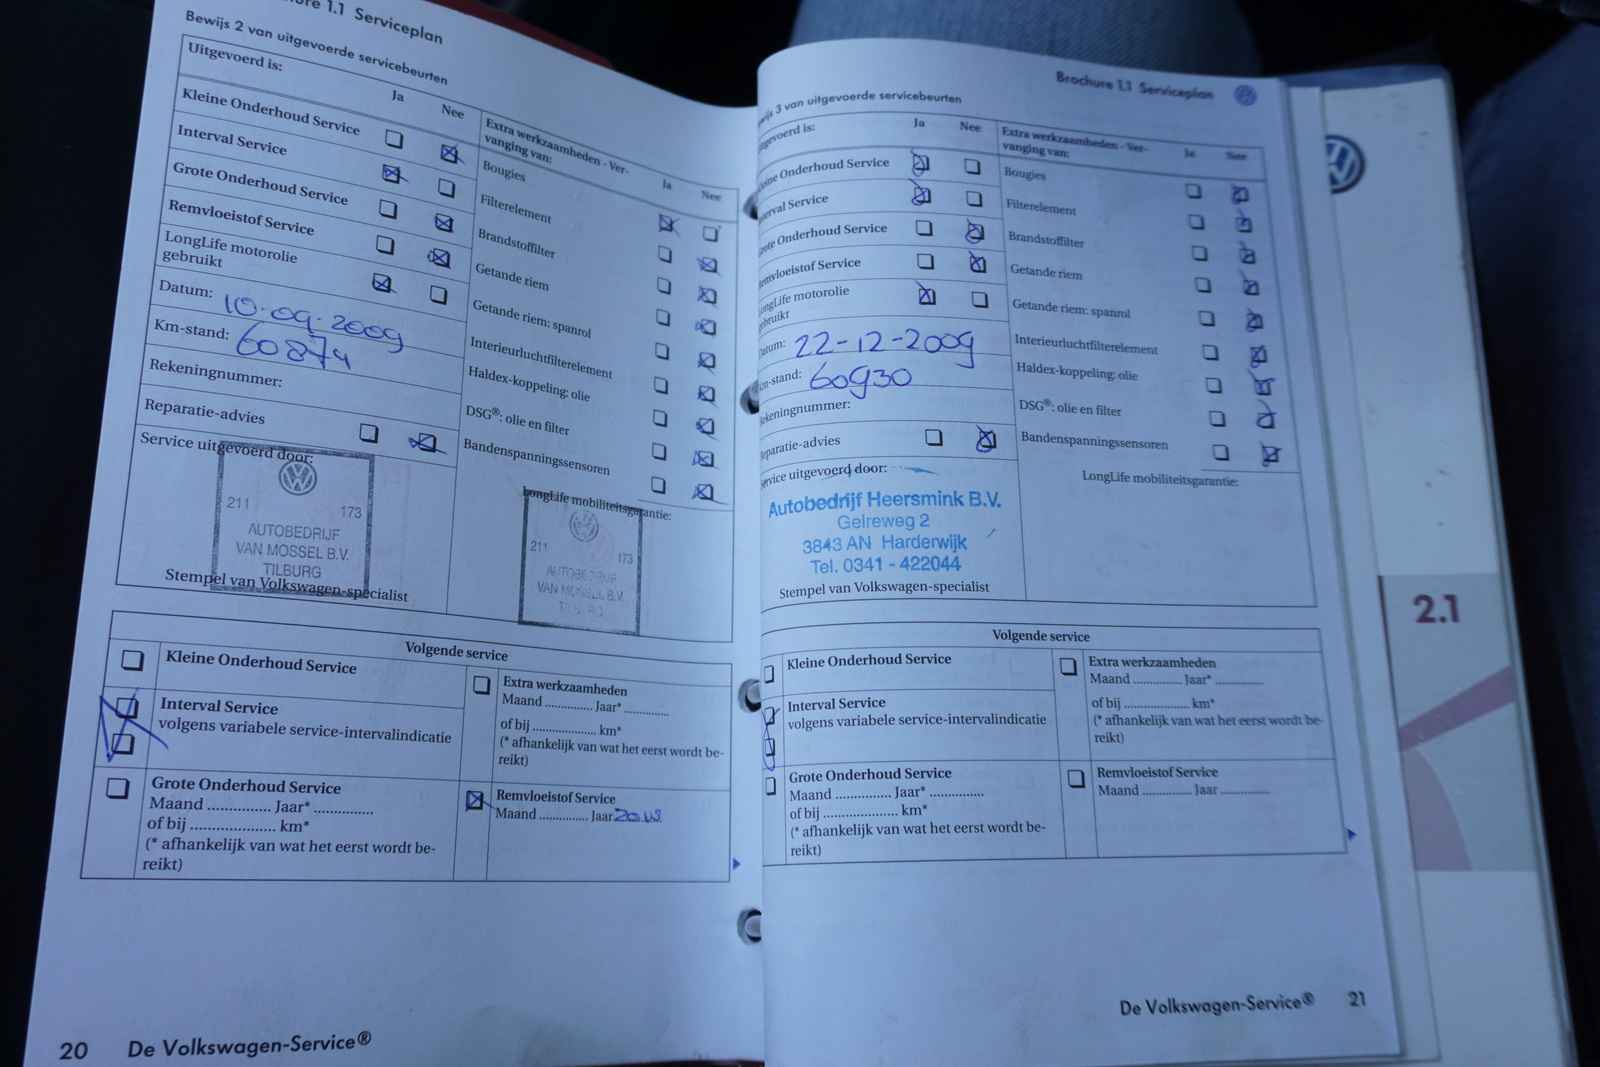 1.1 Serviceplan
Bewijs 2 van uitgevoerde servicebeurten
Uitgevoerd is:
Ja
Nee
Kleine Onderhoud Service
Interval Service
Grote Onderhoud Service
Remvloeistof Service
LongLife motorolie
gebruikt
Datum: 10-09-2009
Km-stand: 60874
Rekeningnummer:
Reparatie-advies
Service uitgevoerd door:
211
173
AUTOBEDRIJF
VAN MOSSEL B.V.
TILBURG
Stempel van Volkswagen-specialist
Extra werkzaamheden - Ver-
vanging van:
Ja
Nee
Bougies
Filterelement
Brandstoffilter
Getande riem
Getande riem: spanrol
Interieurluchtfilterelement
Haldex-koppeling: olie
DSG®: olie en filter
Bandenspanningssensoren
LongLife mobiliteitsgarantie:
211
173
AUTOBEDRIJF
VAN MOSSEL B.V.
Volgende service
Kleine Onderhoud Service
Interval Service
volgens variabele service-intervalindicatie
Grote Onderhoud Service
Maand ............... Jaar* ..............
of bij ..................... km*
(* afhankelijk van wat het eerst wordt be-
reikt)
Extra werkzaamheden
Maand ............... Jaar* ..............
of bij .................... km*
(* afhankelijk van wat het eerst wordt be-
reikt)
Remvloeistof Service
Maand ............... Jaar
20 De Volkswagen-Service®
Brochure 1.1 Serviceplan
3 van uitgevoerde servicebeurten
Ja
Nee
Onderhoud Service
Service
Onderhoud Service
Service
motorolie
22-12-2009
60930
Service uitgevoerd door:
Autobedrijf Heersmink B.V.
Gelreweg 2
3843 AN Harderwijk
Tel. 0341 - 422044
Stempel van Volkswagen-specialist
Extra werkzaamheden - Ver-
vanging van:
Ja
Nee
Bougies
Filterelement
Brandstoffilter
Getande riem
Getande riem: spanrol
Interieurluchtfilterelement
Haldex-koppeling: olie
DSG®: olie en filter
Bandenspanningssensoren
LongLife mobiliteitsgarantie:
Volgende service
Kleine Onderhoud Service
Interval Service
volgens variabele service-intervalindicatie
Grote Onderhoud Service
Maand ............... Jaar* ..............
of bij ..................... km*
(* afhankelijk van wat het eerst wordt be-
reikt)
Extra werkzaamheden
Maand ............... Jaar* ..............
of bij .................... km*
(* afhankelijk van wat het eerst wordt be-
reikt)
Remvloeistof Service
Maand ............... Jaar ..............
De Volkswagen-Service® 21
2.1